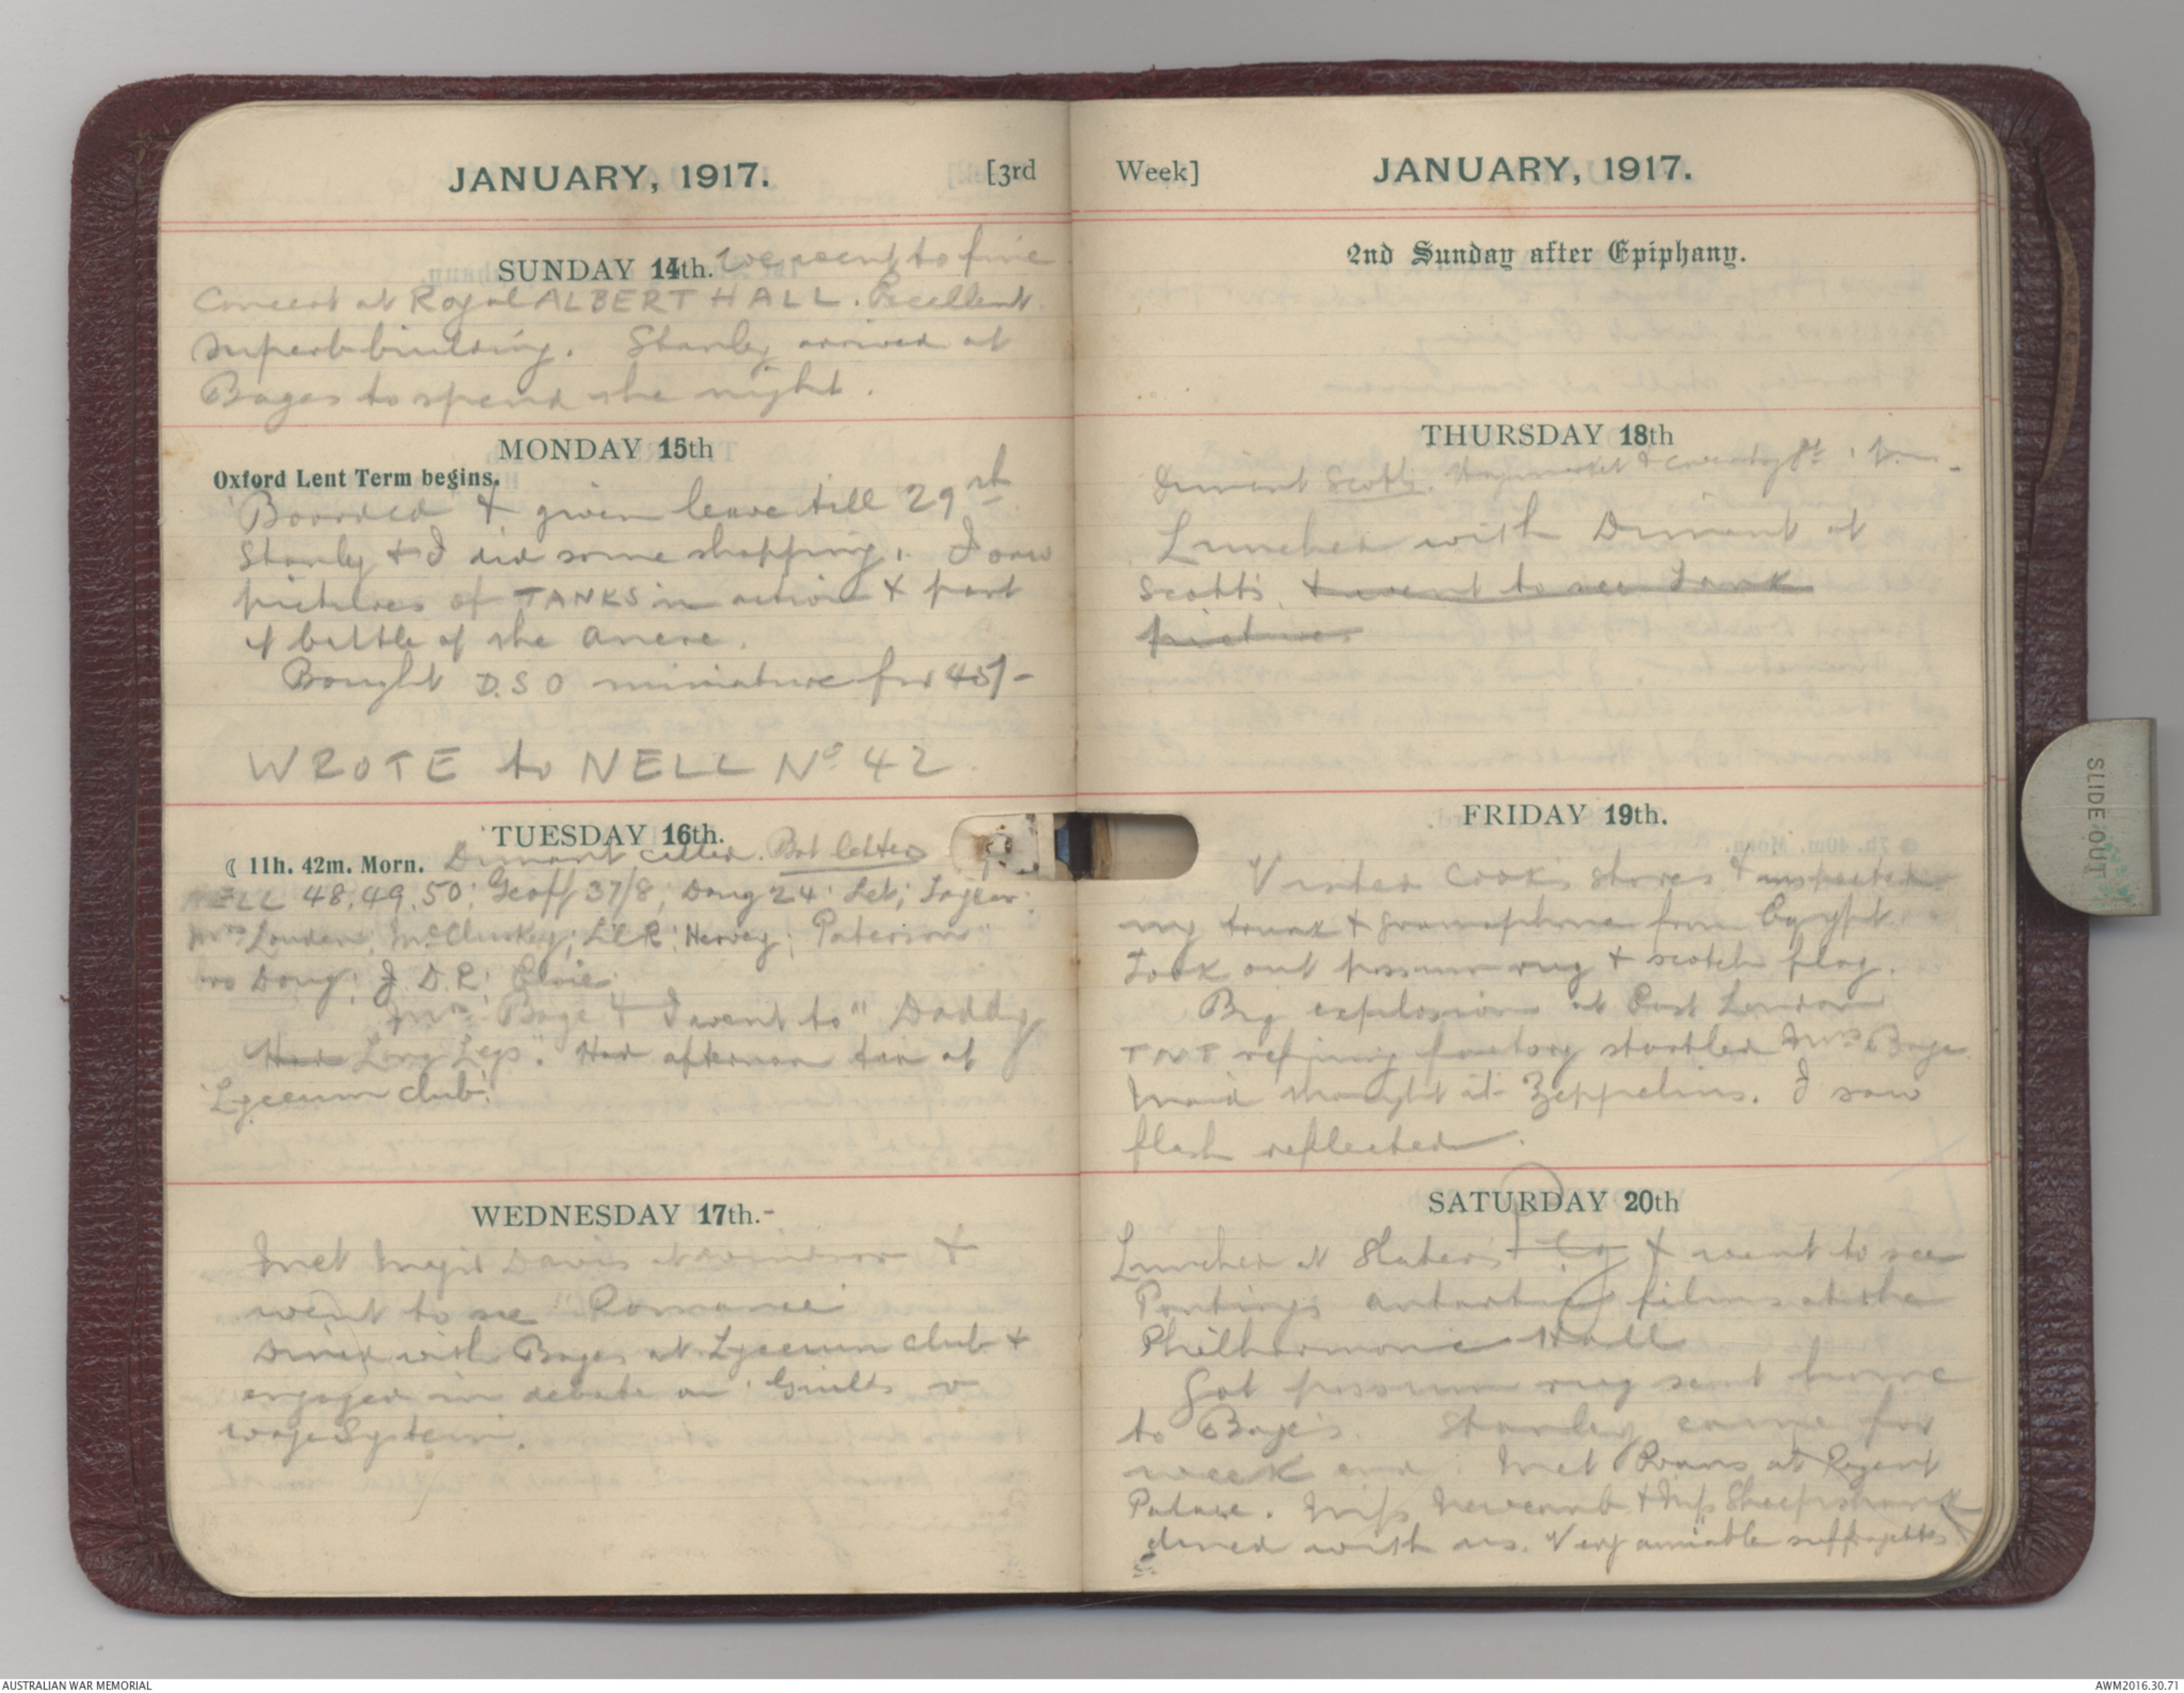 JANUARY, 1917. [3rd
SUNDAY 14th. We went to fine
Concert at Royal ALBERT HALL. Excellent
superb building. Stanley arrived at
Bages to spend the night.
MONDAY 15th
Oxford Lent Term begins.
Boarded & given leave till 29th
Stanley & I did some shopping. I saw
pictures of TANKS in action & part
of battle of the Ancre.
Bought D.S.O miniature for 45/-
WROTE to NELL No 42.
TUESDAY 16th.
☾ 11h. 42m. Morn. Dimant called. Got letters
NELL 48, 49, 50; Geoff 37/8; Doug 24;
Mrs Louden; McCluskey; LCR; Hervey; Paterson
Doug; J.D.R; Elsie.
Mrs Bage & I went to "Daddy
Had Long Legs". Had afternoon tea at
'Lyceum club'.
WEDNESDAY 17th.-
Met Davis at Windsor &
went to see "Romance"
Dined with Bages at Lyceum club &
engaged in debate on 'Guilds v
wage System.'
Week] JANUARY, 1917.
2nd Sunday after Epiphany.
THURSDAY 18th
Dimant Scotts. Haymarket & Coventry St. 1 pm.
Lunched with Dimant at
Scott's. & went to see Tank
pictures
FRIDAY 19th.
Visited Cook's stores & inspected
my trunk & gramophone from Egypt.
Took out possum rug & scotch plag.
Big explosion at East London
TNT refining factory startled Mrs Bage
Maid thought it Zeppelins. I saw
flash reflected.
SATURDAY 20th
Lunched at Slaters & went to see
Ponting's antartic films at the
Philharmonic Hall
Got possum rug sent home
to Bage's. Stanley came for
week end. Met Evans at Regent
Palace. Miss Newcomb & Miss Sheepshanks
dined with us. Very amiable suffragettes
SLIDE OUT
AUSTRALIAN WAR MEMORIAL AWM2016.30.71